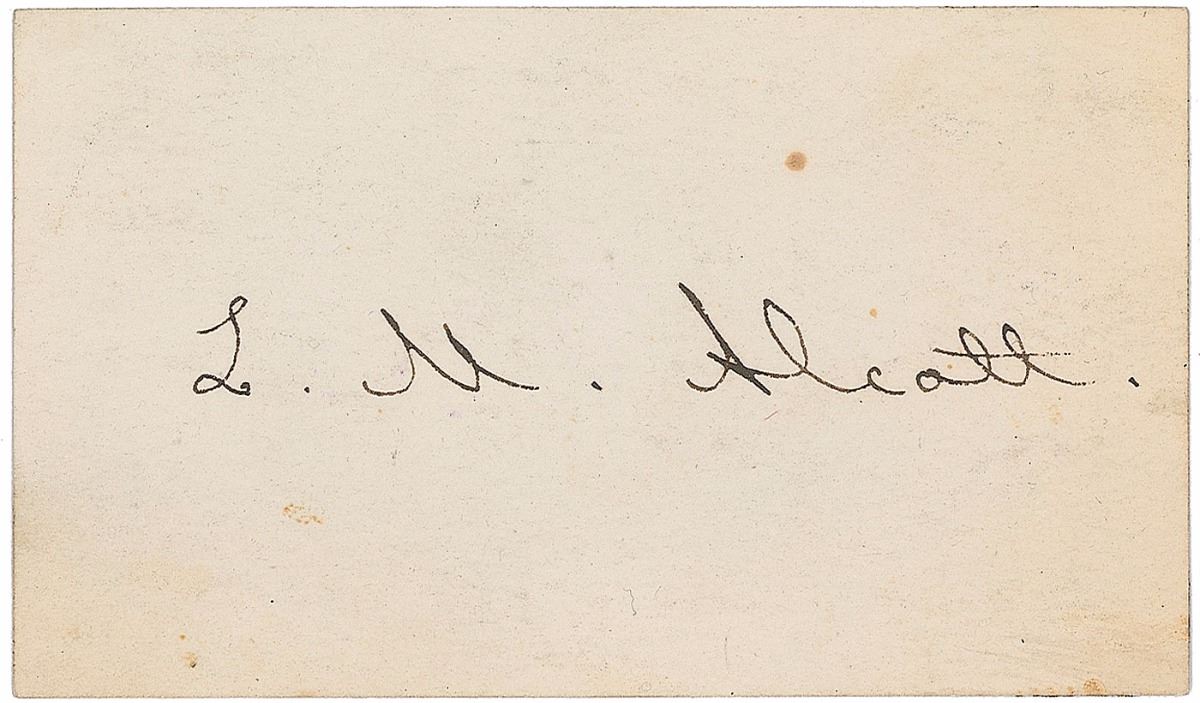 L. M. Alcott.